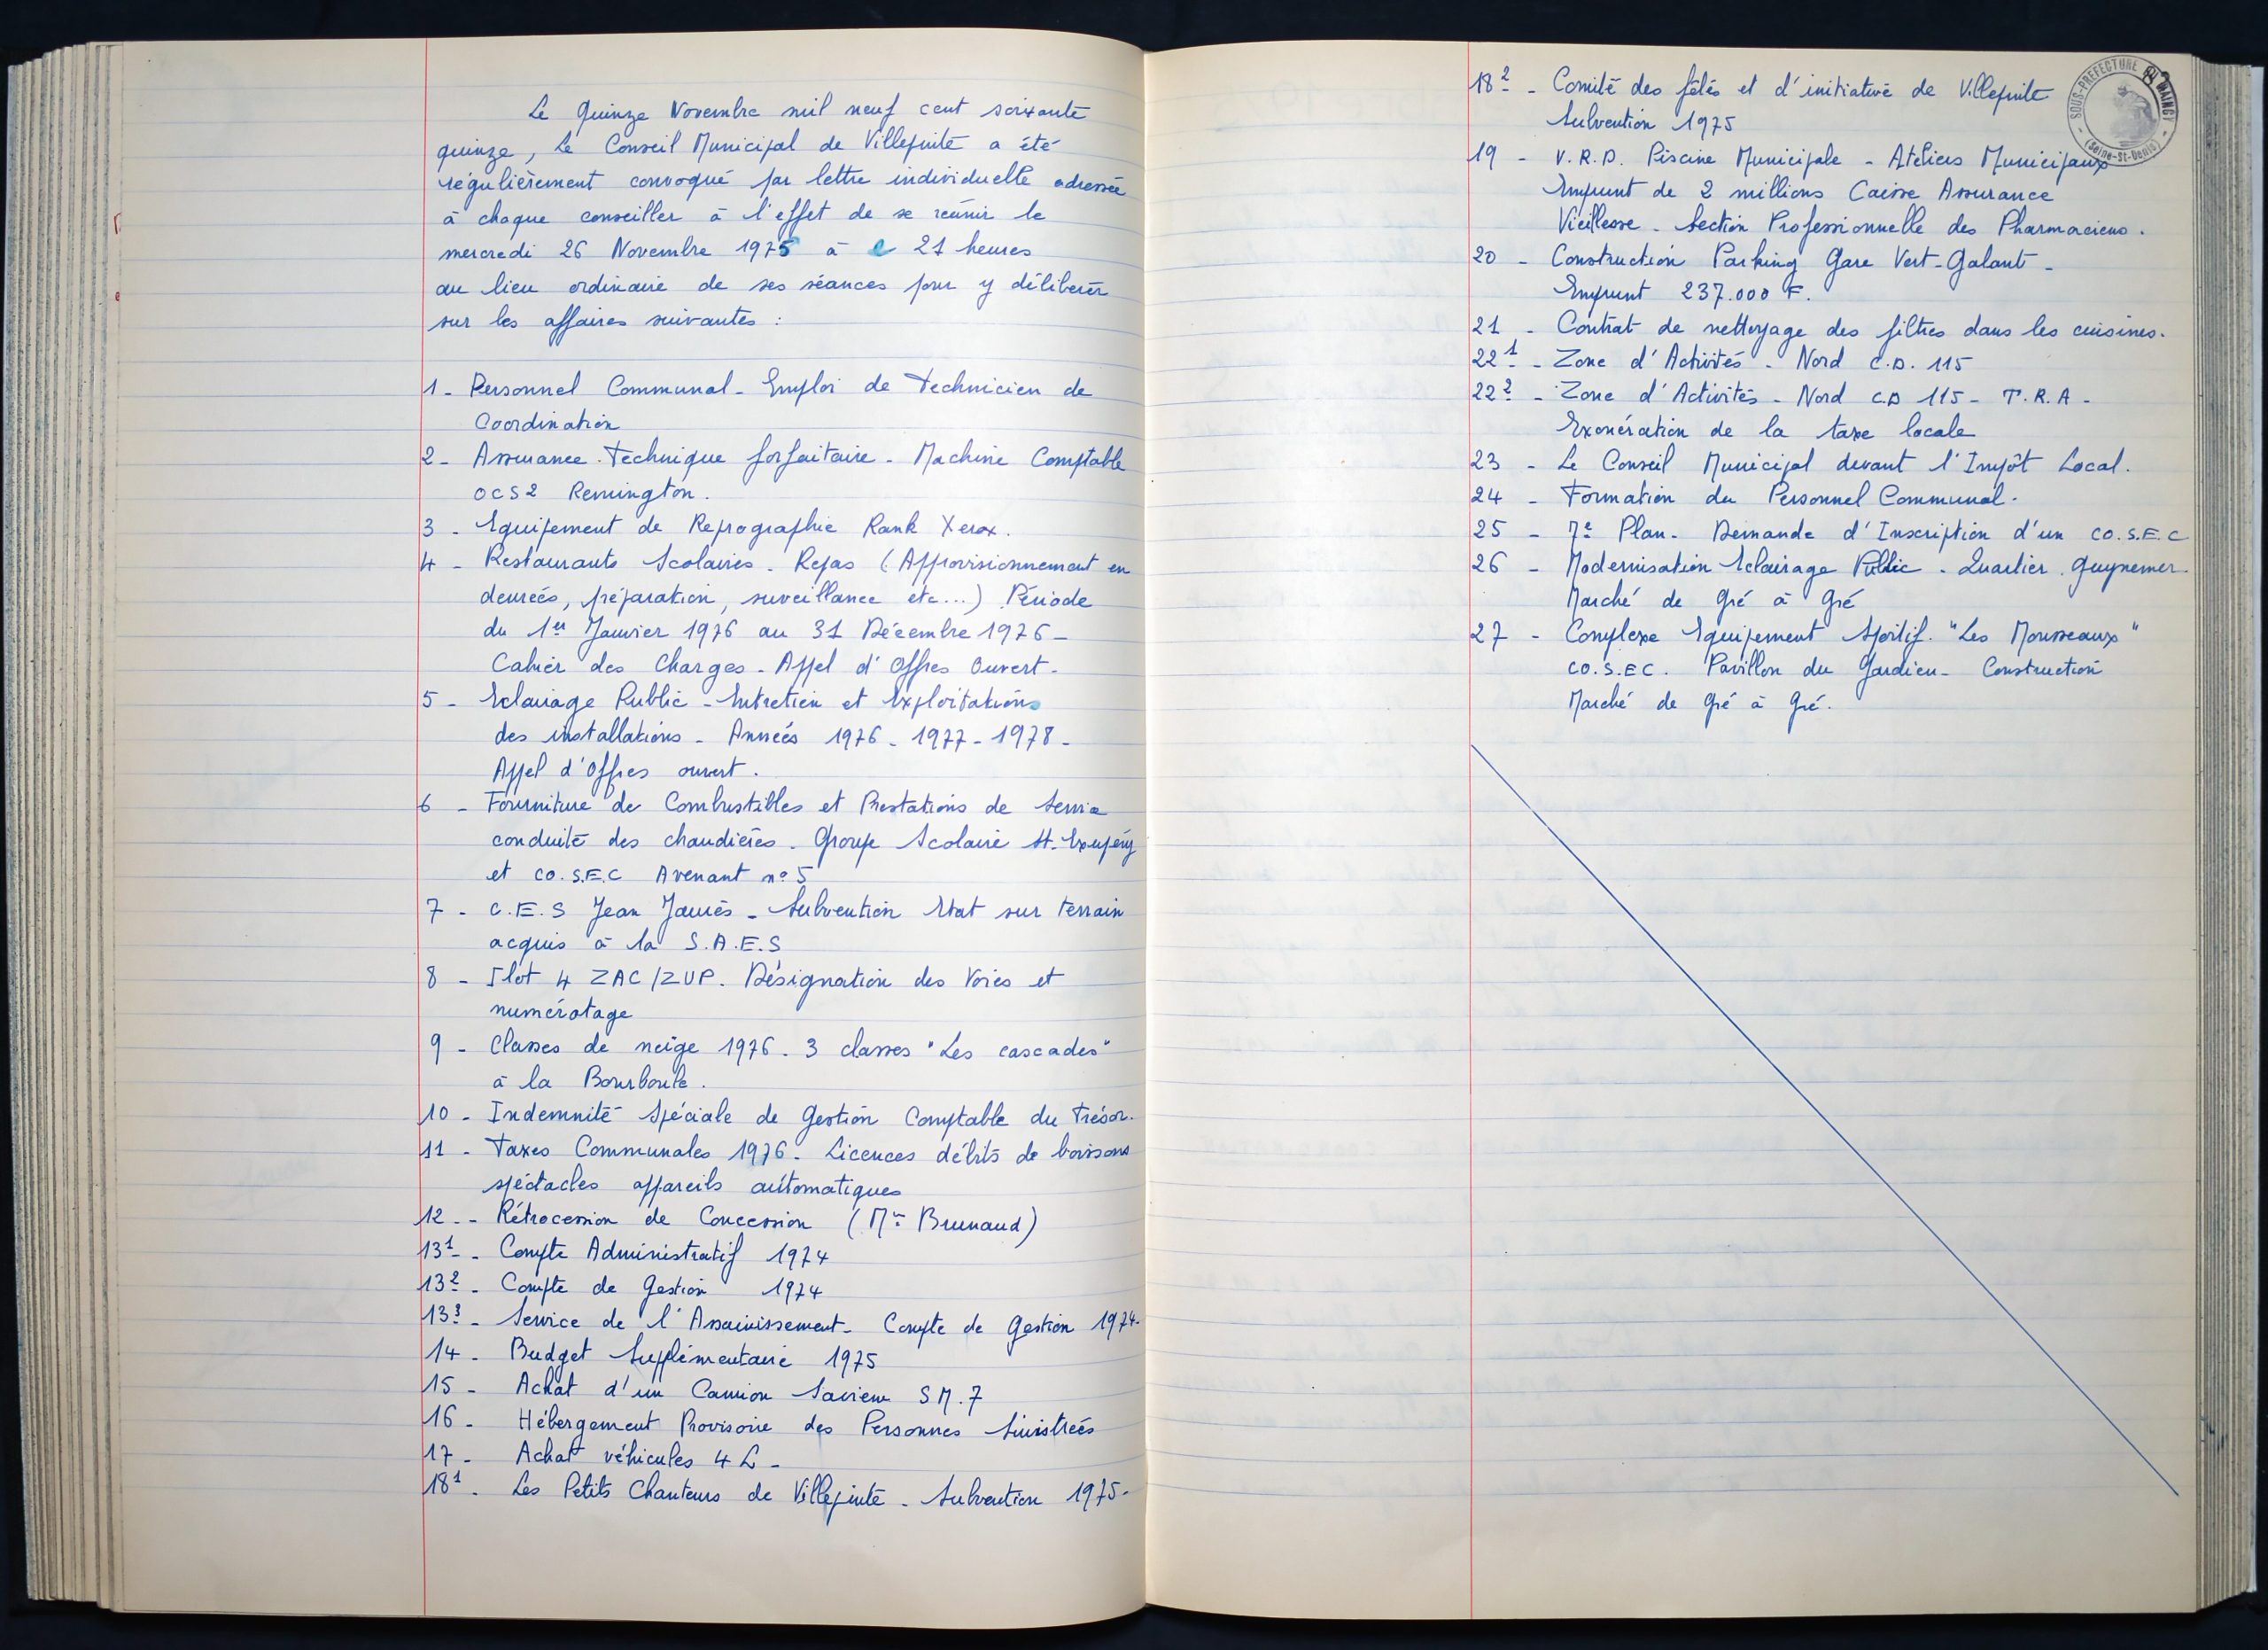 Le Quinze Novembre mil neuf cent soixante
quinze, Le Conseil Municipal de Villepinte a été
régulièrement convoqué par lettre individuelle adressée
à chaque conseiller à l'effet de se réunir le
mercredi 26 Novembre 1975 à 21 heures
au lieu ordinaire de ses séances pour y délibérer
sur les affaires suivantes :
1 - Personnel Communal - Emploi de Technicien de
Coordination
2 - Assurance Technique forfaitaire - Machine Comptable
OCS2 Remington.
3 - Equipement de Reprographie Rank Xerox.
4 - Restaurants Scolaires - Repas (Approvisionnement en
denrées, préparation, surveillance etc...) Période
du 1er Janvier 1976 au 31 Décembre 1976 -
Cahier des Charges - Appel d'Offres Ouvert -
5 - Eclairage Public - Entretien et Exploitations
des installations - Années 1976 - 1977 - 1978 -
Appel d'Offres ouvert.
6 - Fourniture de Combustibles et Prestations de Service
conduite des chaudières - Groupe Scolaire St-Exupéry
et CO.S.E.C Avenant n° 5
7 - C.E.S Jean Jaurès - Subvention Etat sur terrain
acquis à la S.A.E.S
8 - Ilot 4 ZAC/ZUP. Désignation des Voies et
numérotage
9 - Classes de neige 1976 - 3 classes "Les cascades"
à la Bourboule.
10 - Indemnité Spéciale de Gestion Comptable du Trésor.
11 - Taxes Communales 1976 - Licences débits de boissons
spéctacles appareils automatiques
12 - - Rétrocession de Concession (Mr Brunaud)
13¹ - Compte Administratif 1974
13² - Compte de Gestion 1974
13³ - Service de l'Assainissement - Compte de Gestion 1974 -
14 - Budget Supplémentaire 1975
15 - Achat d'un Camion Saviem SM.7
16 - Hébergement Provisoire des Personnes Sinistrées
17 - Achat véhicules 4 L -
18¹ - Les Petits Chanteurs de Villepinte - Subvention 1975 -
SOUS-PREFECTURE
(Seine-St-Denis)
18² - Comité des fêtes et d'initiative de Villepinte
Subvention 1975
19 - V.R.D. Piscine Municipale - Ateliers Municipaux
Emprunt de 2 millions Caisse Assurance
Vieillesse - Section Professionnelle des Pharmaciens.
20 - Construction Parking Gare Vert-Galant -
Emprunt 237.000 F.
21 - Contrat de nettoyage des filtres dans les cuisines.
22¹ - Zone d'Activités - Nord C.D. 115
22² - Zone d'Activités - Nord C.D 115 - T.R.A -
Exonération de la taxe locale
23 - Le Conseil Municipal devant l'Impôt Local.
24 - Formation du Personnel Communal.
25 - 7e Plan - Demande d'Inscription d'un CO.S.E.C
26 - Modernisation Eclairage Public - Quartier Guynemer -
Marché de Gré à Gré
27 - Complexe Equipement Sportif "Les Mousseaux"
CO.S.EC. Pavillon du Gardien - Construction
Marché de Gré à Gré.